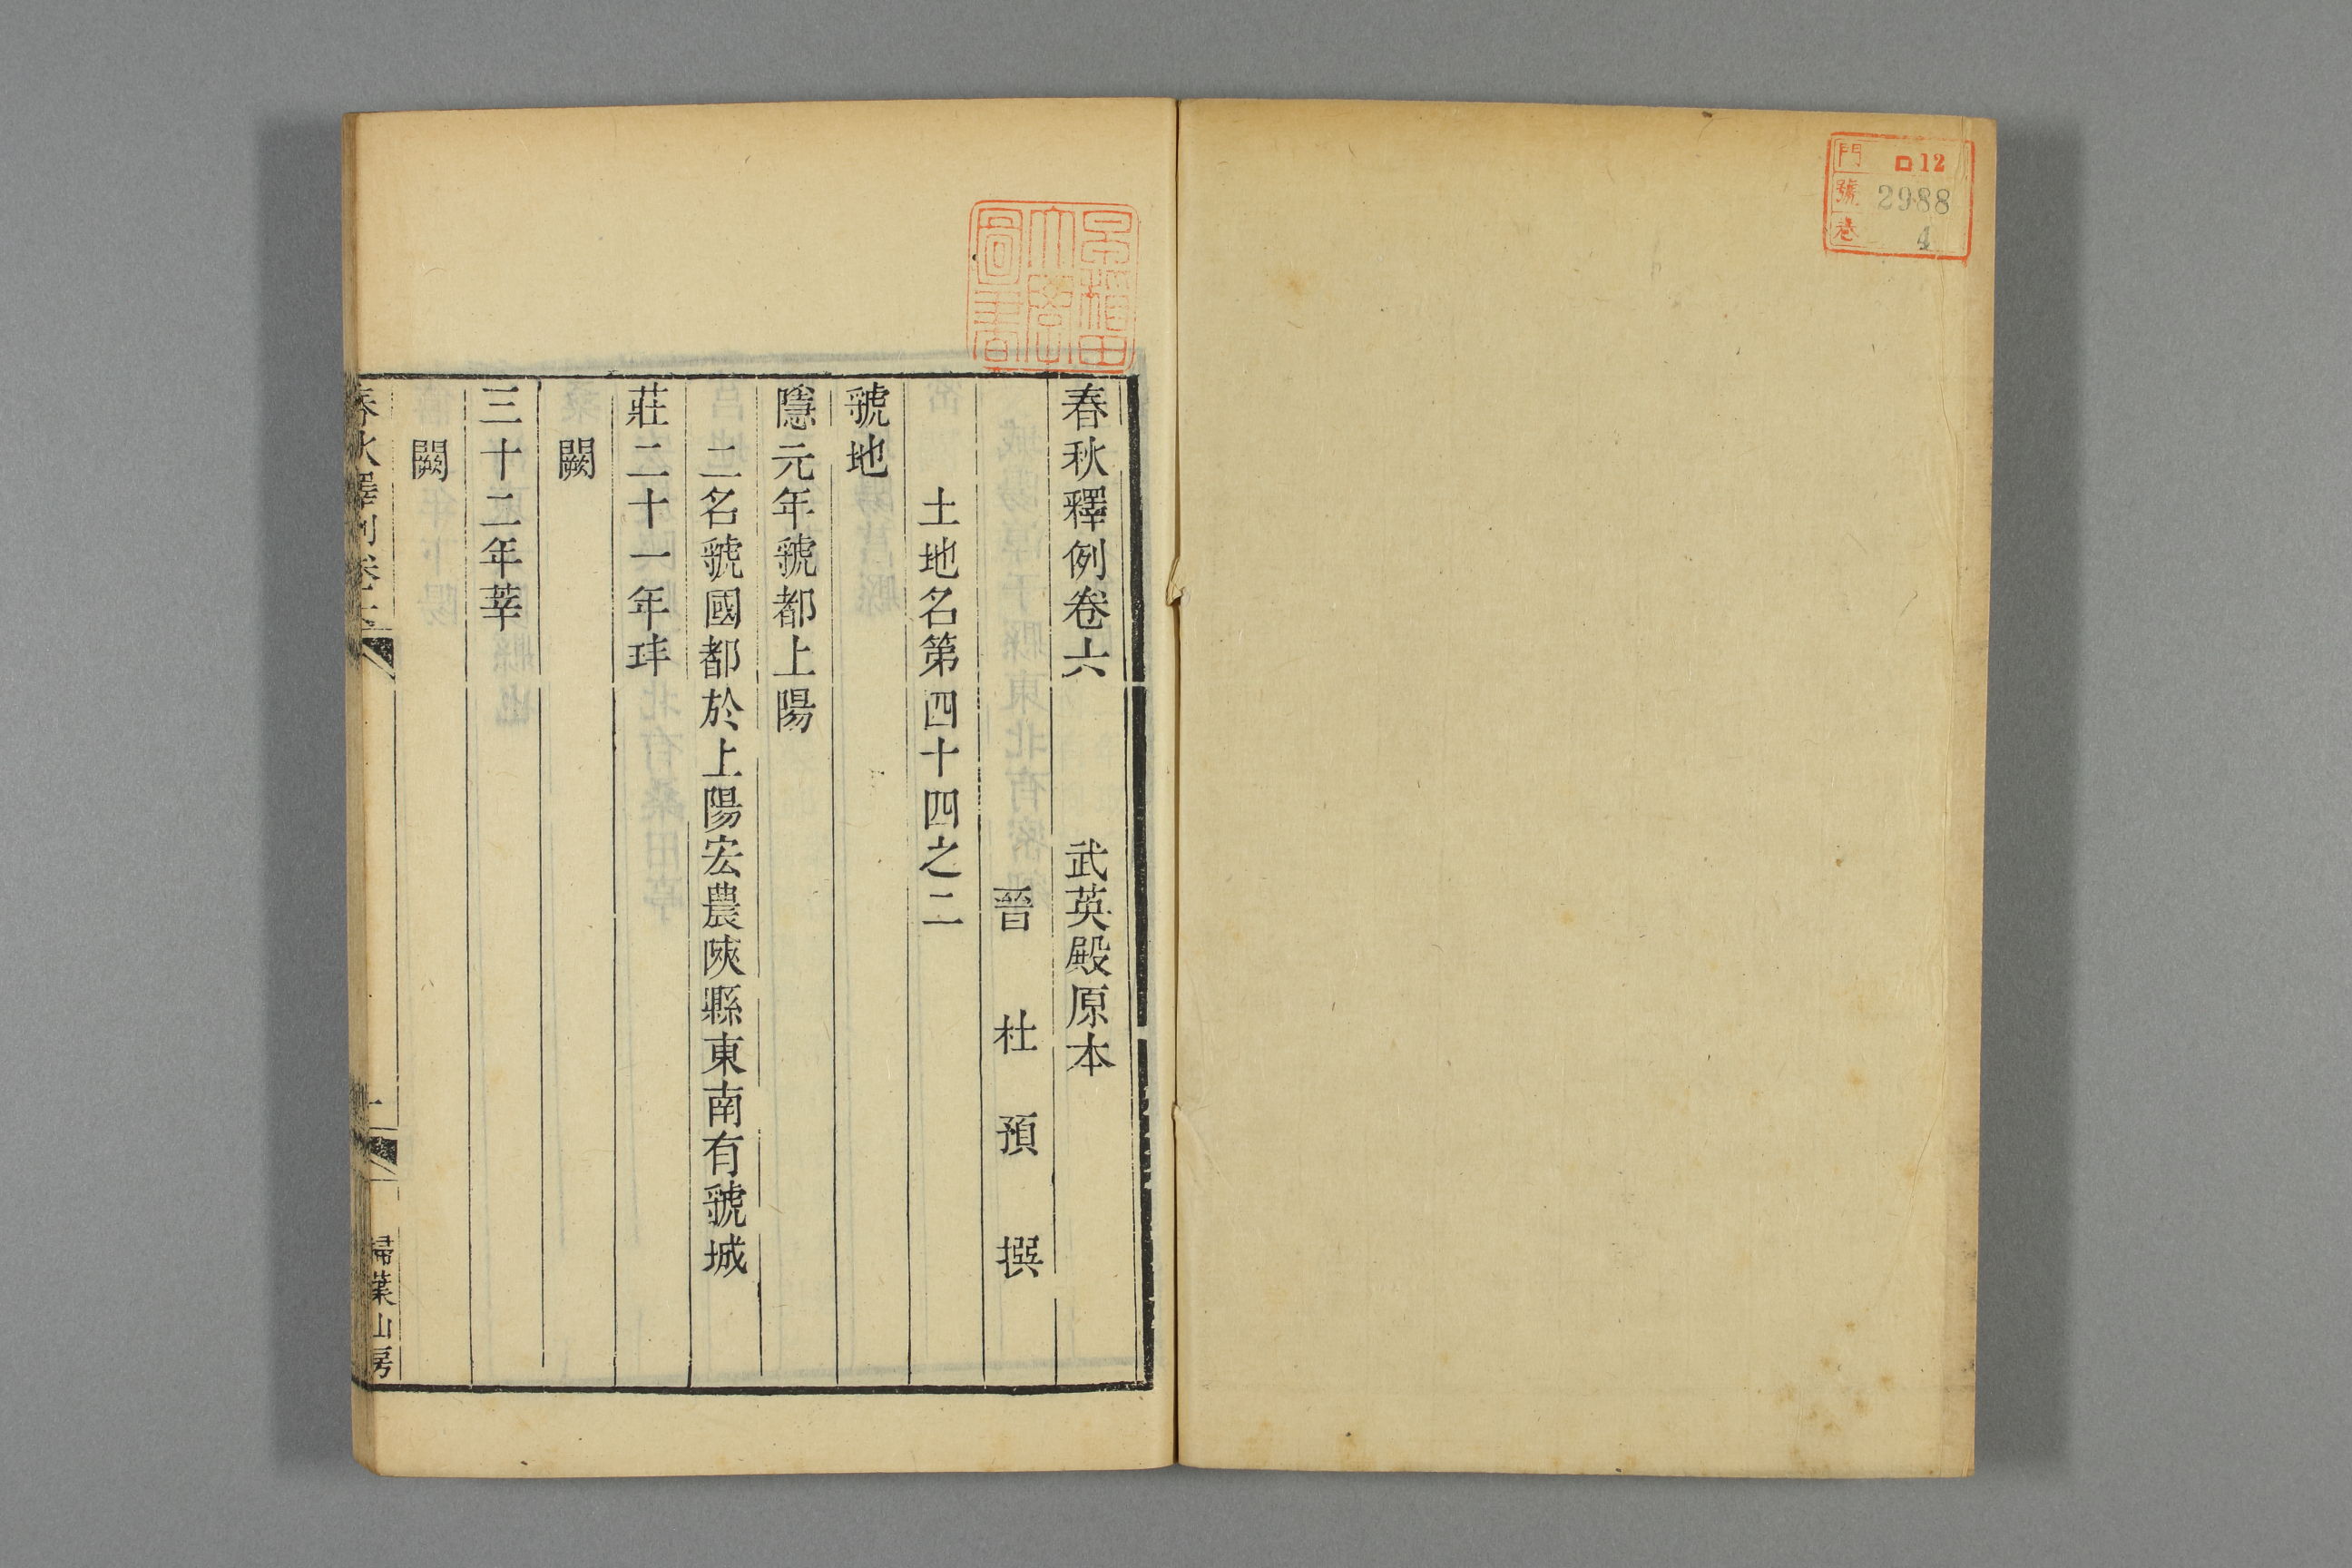 門 ロ12
號 2988
卷 4
早稻田大學圖書
春秋釋例卷六 武英殿原本
晉 杜 預 撰
土地名第四十四之二
虢地
隱元年虢都上陽
二名虢國都於上陽宏農陝縣東南有虢城
莊二十一年玤
闕
三十二年莘
闕
春秋釋例卷六 一 掃葉山房